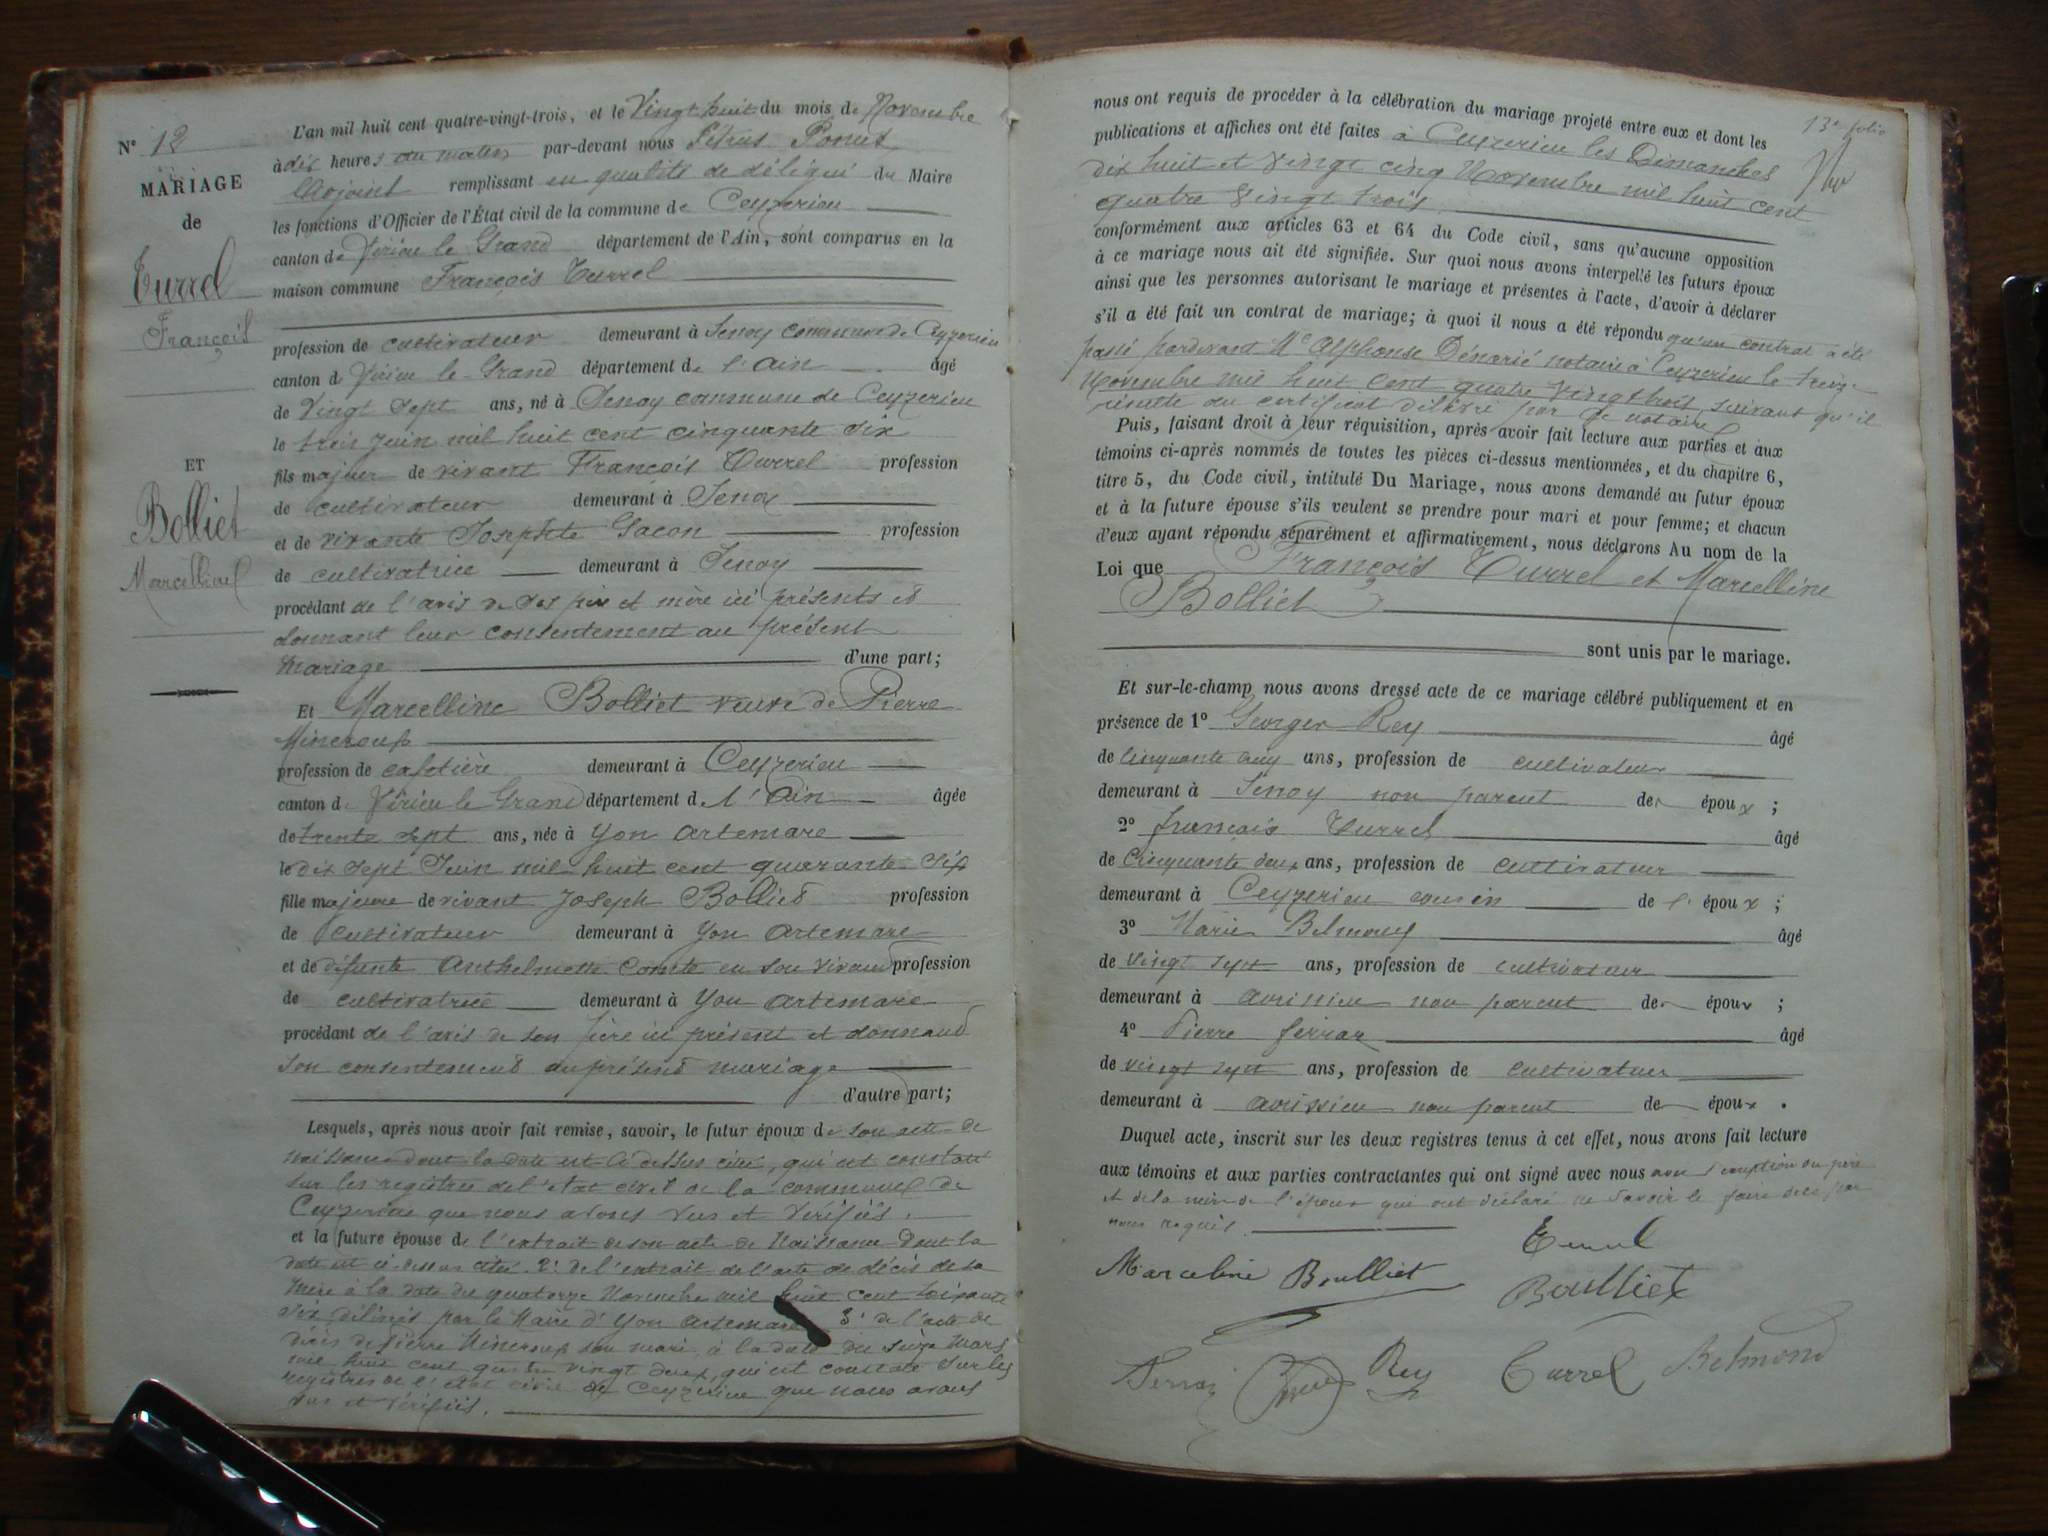 N° 12
MARIAGE
de
Turrel
François
ET
Bolliet
Marcelline
L'an mil huit cent quatre-vingt-trois, et le Vingt huit du mois de Novembre
à dix heures du matin par-devant nous
Adjoint remplissant en qualité de délégué du Maire
les fonctions d'Officier de l'État civil de la commune de Ceyzerieu
canton de Virieu le Grand département de l'Ain, sont comparus en la
maison commune François Turrel
profession de cultivateur demeurant à Senoy commune de Ceyzerieu
canton d Virieu le Grand département de l'Ain âgé
de Vingt sept ans, né à Senoy commune de Ceyzerieu
le trois Juin mil huit cent cinquante six
fils majeur de vivant François Turrel profession
de cultivateur demeurant à Senoy
et de vivante Josephte Gacon profession
de cultivatrice demeurant à Senoy
procédant de l'avis de ses père et mère ici présents et
donnant leur consentement au présent
mariage d'une part;
Et Marcelline Bolliet veuve de Pierre
Mineroup
profession de cafetière demeurant à Ceyzerieu
canton d Virieu le Grand département d l'Ain âgée
de trente sept ans, née à Yon Artemare
le dix sept Juin mil huit cent quarante six
fille majeure de vivant Joseph Bolliet profession
de cultivateur demeurant à Yon Artemare
et de défunte Anthelmette Comte en son vivant profession
de cultivatrice demeurant à Yon Artemare
procédant de l'avis de son père ici présent et donnant
son consentement au présent mariage
d'autre part;
Lesquels, après nous avoir fait remise, savoir, le futur époux de son acte de
naissance dont la date est ci dessus citée, qui est constaté
sur les registres de l'état civil de la commune de
Ceyzerieu que nous avons vus et vérifiés.
et la future épouse de l'extrait de son acte de Naissance dont la
date est ci-dessus citée 2° de l'extrait de l'acte de décès de sa
mère à la date du quatorze Novembre mil huit cent soixante
dix délivrés par le Maire d'Yon Artemare 3° de l'acte de
décès de Pierre Mineroup son mari à la date du seize Mars
mil huit cent quatre vingt deux, qui est constaté sur les
registres de l'état civil de Ceyzerieu que nous avons
vus et vérifiés.
13e folio
nous ont requis de procéder à la célébration du mariage projeté entre eux et dont les
publications et affiches ont été faites à Ceyzerieu les Dimanches
dix huit et vingt cinq Novembre mil huit cent
quatre vingt trois
conformément aux articles 63 et 64 du Code civil, sans qu'aucune opposition
à ce mariage nous ait été signifiée. Sur quoi nous avons interpellé les futurs époux
ainsi que les personnes autorisant le mariage et présentes à l'acte, d'avoir à déclarer
s'il a été fait un contrat de mariage; à quoi il nous a été répondu qu'un contrat a été
passé pardevant Me Alphonse Dénarié notaire à Ceyzerieu le treize
Novembre mil huit cent quatre vingt trois, suivant qu'il
résulte du certificat délivré par ce notaire
Puis, faisant droit à leur réquisition, après avoir fait lecture aux parties et aux
témoins ci-après nommés de toutes les pièces ci-dessus mentionnées, et du chapitre 6,
titre 5, du Code civil, intitulé Du Mariage, nous avons demandé au futur époux
et à la future épouse s'ils veulent se prendre pour mari et pour femme; et chacun
d'eux ayant répondu séparément et affirmativement, nous déclarons Au nom de la
Loi que François Turrel et Marcelline
Bolliet
sont unis par le mariage.
Et sur-le-champ nous avons dressé acte de ce mariage célébré publiquement et en
présence de 1° Georges Rey âgé
de Cinquante cinq ans, profession de cultivateur
demeurant à Senoy non parent de époux ;
2° François Turrel âgé
de Cinquante deux ans, profession de cultivateur
demeurant à Ceyzerieu cousin de l' époux ;
3° Marie âgé
de vingt sept ans, profession de cultivateur
demeurant à avrissieu non parent de époux ;
4° Pierre âgé
de vingt sept ans, profession de cultivateur
demeurant à avrissieu non parent de époux .
Duquel acte, inscrit sur les deux registres tenus à cet effet, nous avons fait lecture
aux témoins et aux parties contractantes qui ont signé avec nous à l'exception du père
et de la mère de l'époux qui ont déclaré ne savoir le faire de ce par
nous requis.
Marceline Boulliet
Boulliet
Rey Turrel Belmond